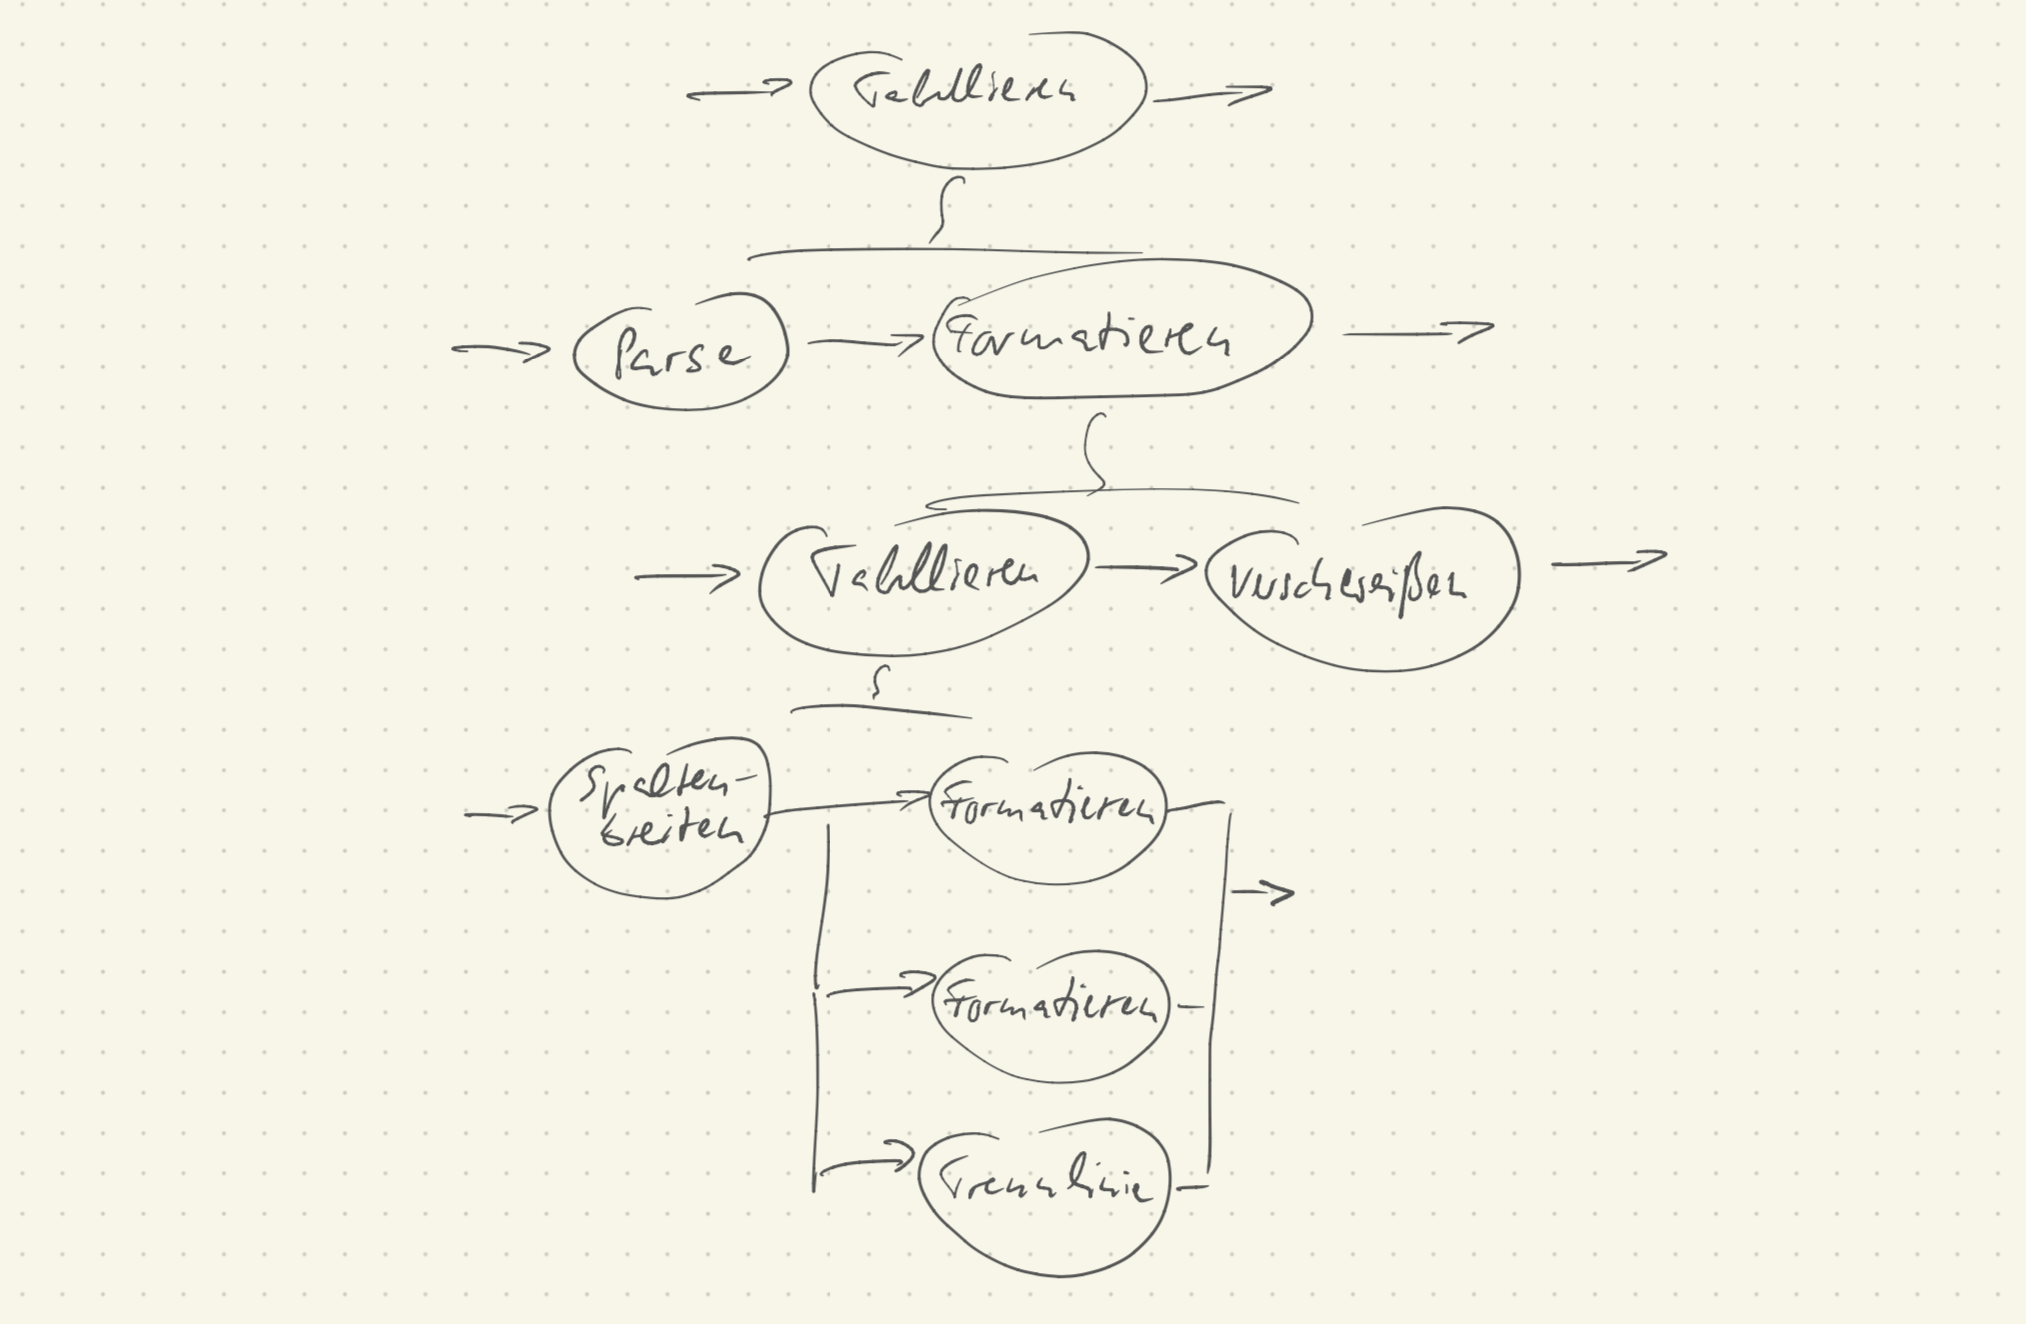 Tabellieren
Parse
Formatieren
Tabellieren
Verschweißen
Spalten-
breiten
Formatieren
Formatieren
Trennlinie